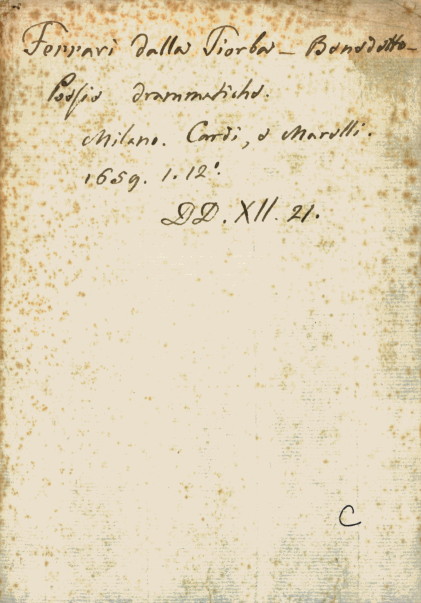 Ferrari dalla Tiorba - Benedetto -
Poesie drammatiche.
Milano. Cardi, e Marelli.
1659. 1. 12.°
DD. XII. 21.
C